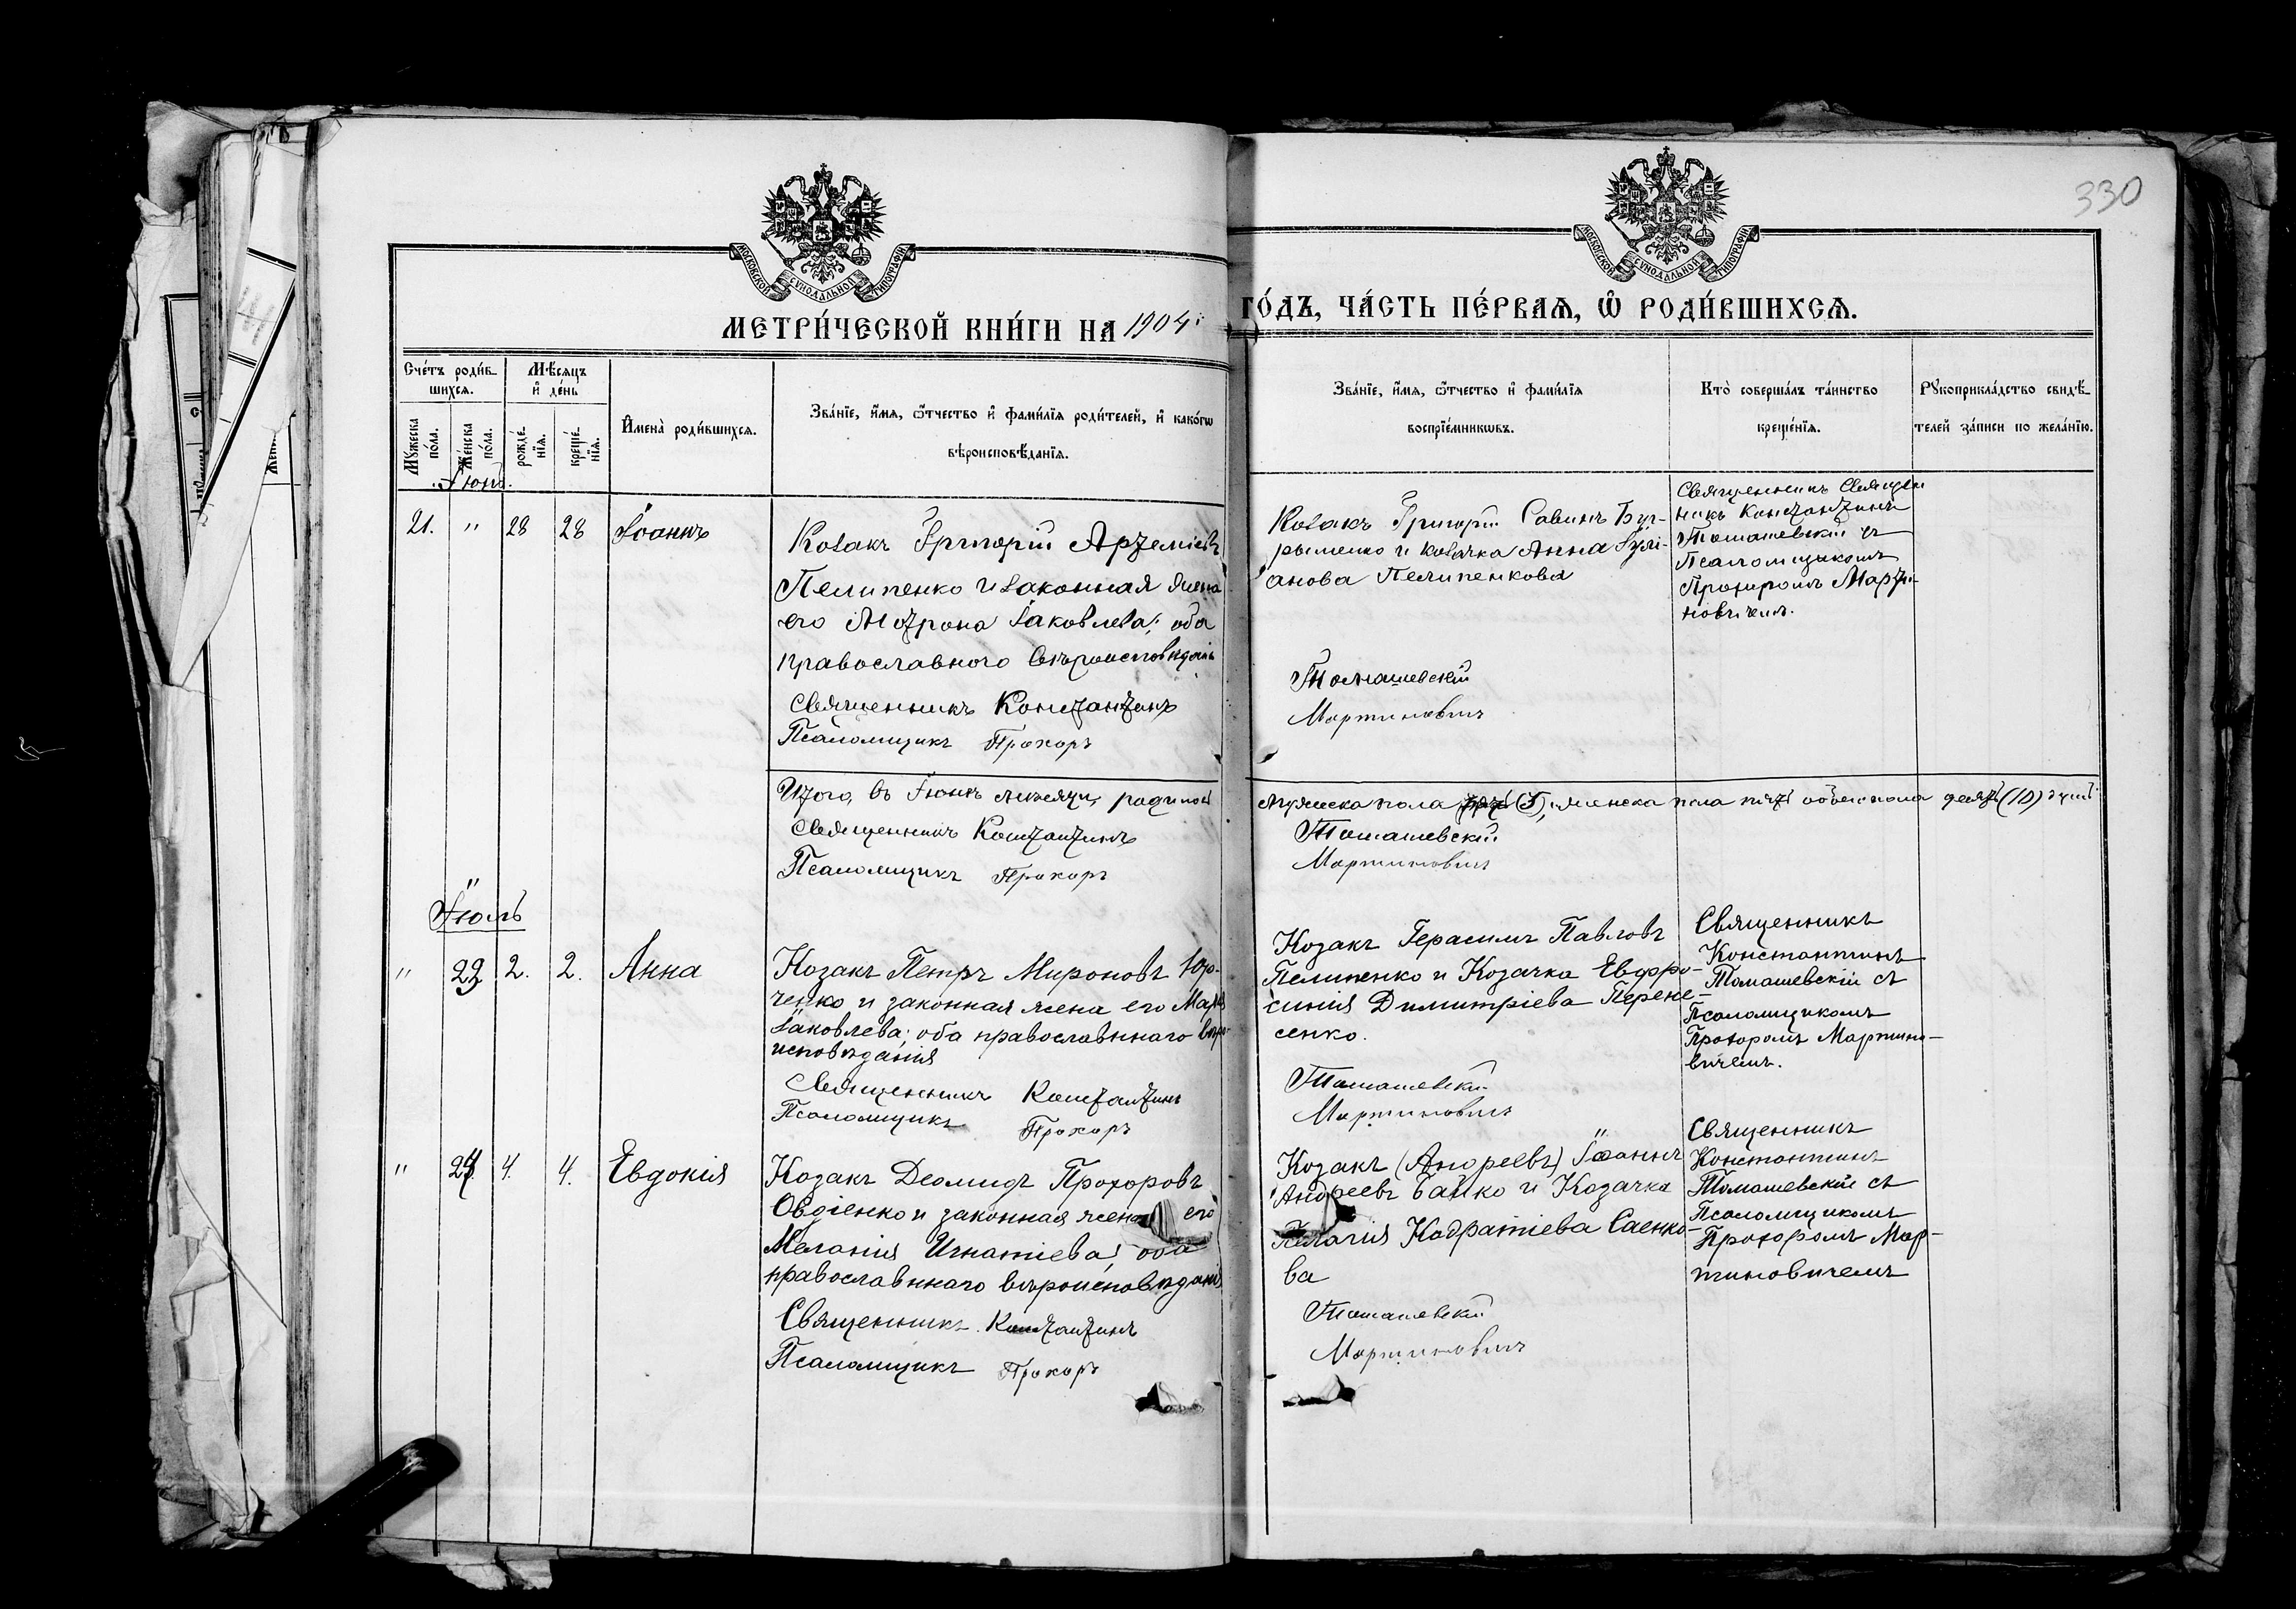 330
МОСКОВСКОЙ СѴНОДАЛЬНОЙ ТИПОГРАФІИ
МОСКОВСКОЙ СѴНОДАЛЬНОЙ ТИПОГРАФІИ
МЕТРИ́ЧЕСКОЙ КНИ́ГИ НА 1904
ГО́ДЪ, ЧА́СТЬ ПЕ́РВАЯ, Ѽ РОДИ́ВШИХСѦ.
Сче́тъ роди́в-
шихсѧ.
Мꙋжеска по́ла.
Же́нска по́ла.
Мѣ́сяцъ
и҆ де́нь
рожде́-нїѧ.
креще́-нїѧ.
И҆мена̀ роди́вшихсѧ.
Зва́нїе, и҆́мѧ, ѻ҆́тчество и҆ фами́лїѧ роди́телей, и҆ како́гѡ
вѣроисповѣ́данїѧ.
Зва́нїе, и҆́мѧ, ѻ҆́тчество и҆ фами́лїѧ
воспрїе́мникѡвъ.
Кто̀ соверша́лъ та́инство
креще́нїѧ.
Рꙋкоприкла́дство свидѣ́-
телей за́писи по жела́нїю.
Іюнь.
21. " 28 28 Іоаннъ
Козакъ Григорій Артеміевъ
Пелипенко и законная жена
его Мотрона Іаковлева; оба
православного вѣроисповѣданія
Священникъ Константинъ
Псаломщикъ Прохоръ
Козакъ Григорій Савинъ
и козачка Анна
анова Пелипенкова
Томашевскій
Мартиновичъ
Священникъ
Константинъ
Томашевскій съ
Псаломщикомъ
Прохоромъ Марти-
новичемъ.
Итого, въ Іюнѣ мѣсяцѣ, родилось
мужеска пола (5), женска пола пять обоего пола десять (10) душъ
Священникъ Константинъ
Томашевскій
Псаломщикъ Прохоръ
Мартиновичъ
Іюль
" 2. 2. Анна
Козакъ Петръ Мироновъ Юр-
ченко и законная жена его
Іаковлева; оба православнаго вѣро-
исповѣданія
Священникъ Константинъ
Псаломщикъ Прохоръ
Козакъ Герасимъ Павловъ
Пелипенко и Козачка Евфро-
синія Димитріева Перене-
сенко.
Томашевскій
Мартиновичъ
Священникъ
Константинъ
Томашевскій съ
Псаломщикомъ
Прохоромъ Мартино-
вичемъ.
" 4. 4. Евдокія
Козакъ Деомидъ Прохоровъ
Овдіенко и законная жена его
Меланія Игнатіева; оба
православннаго вѣроисповѣданія
Священникъ Константинъ
Псаломщикъ Прохоръ
Козакъ (Андреевъ) Іоаннъ
Андреевъ Байко и Козачка
Пелагія Кадратіева Саенко-
ва
Томашевскій
Мартиновичъ
Священникъ
Константинъ
Томашевскій съ
Псаломщикомъ
Прохоромъ Мар-
тиновичемъ